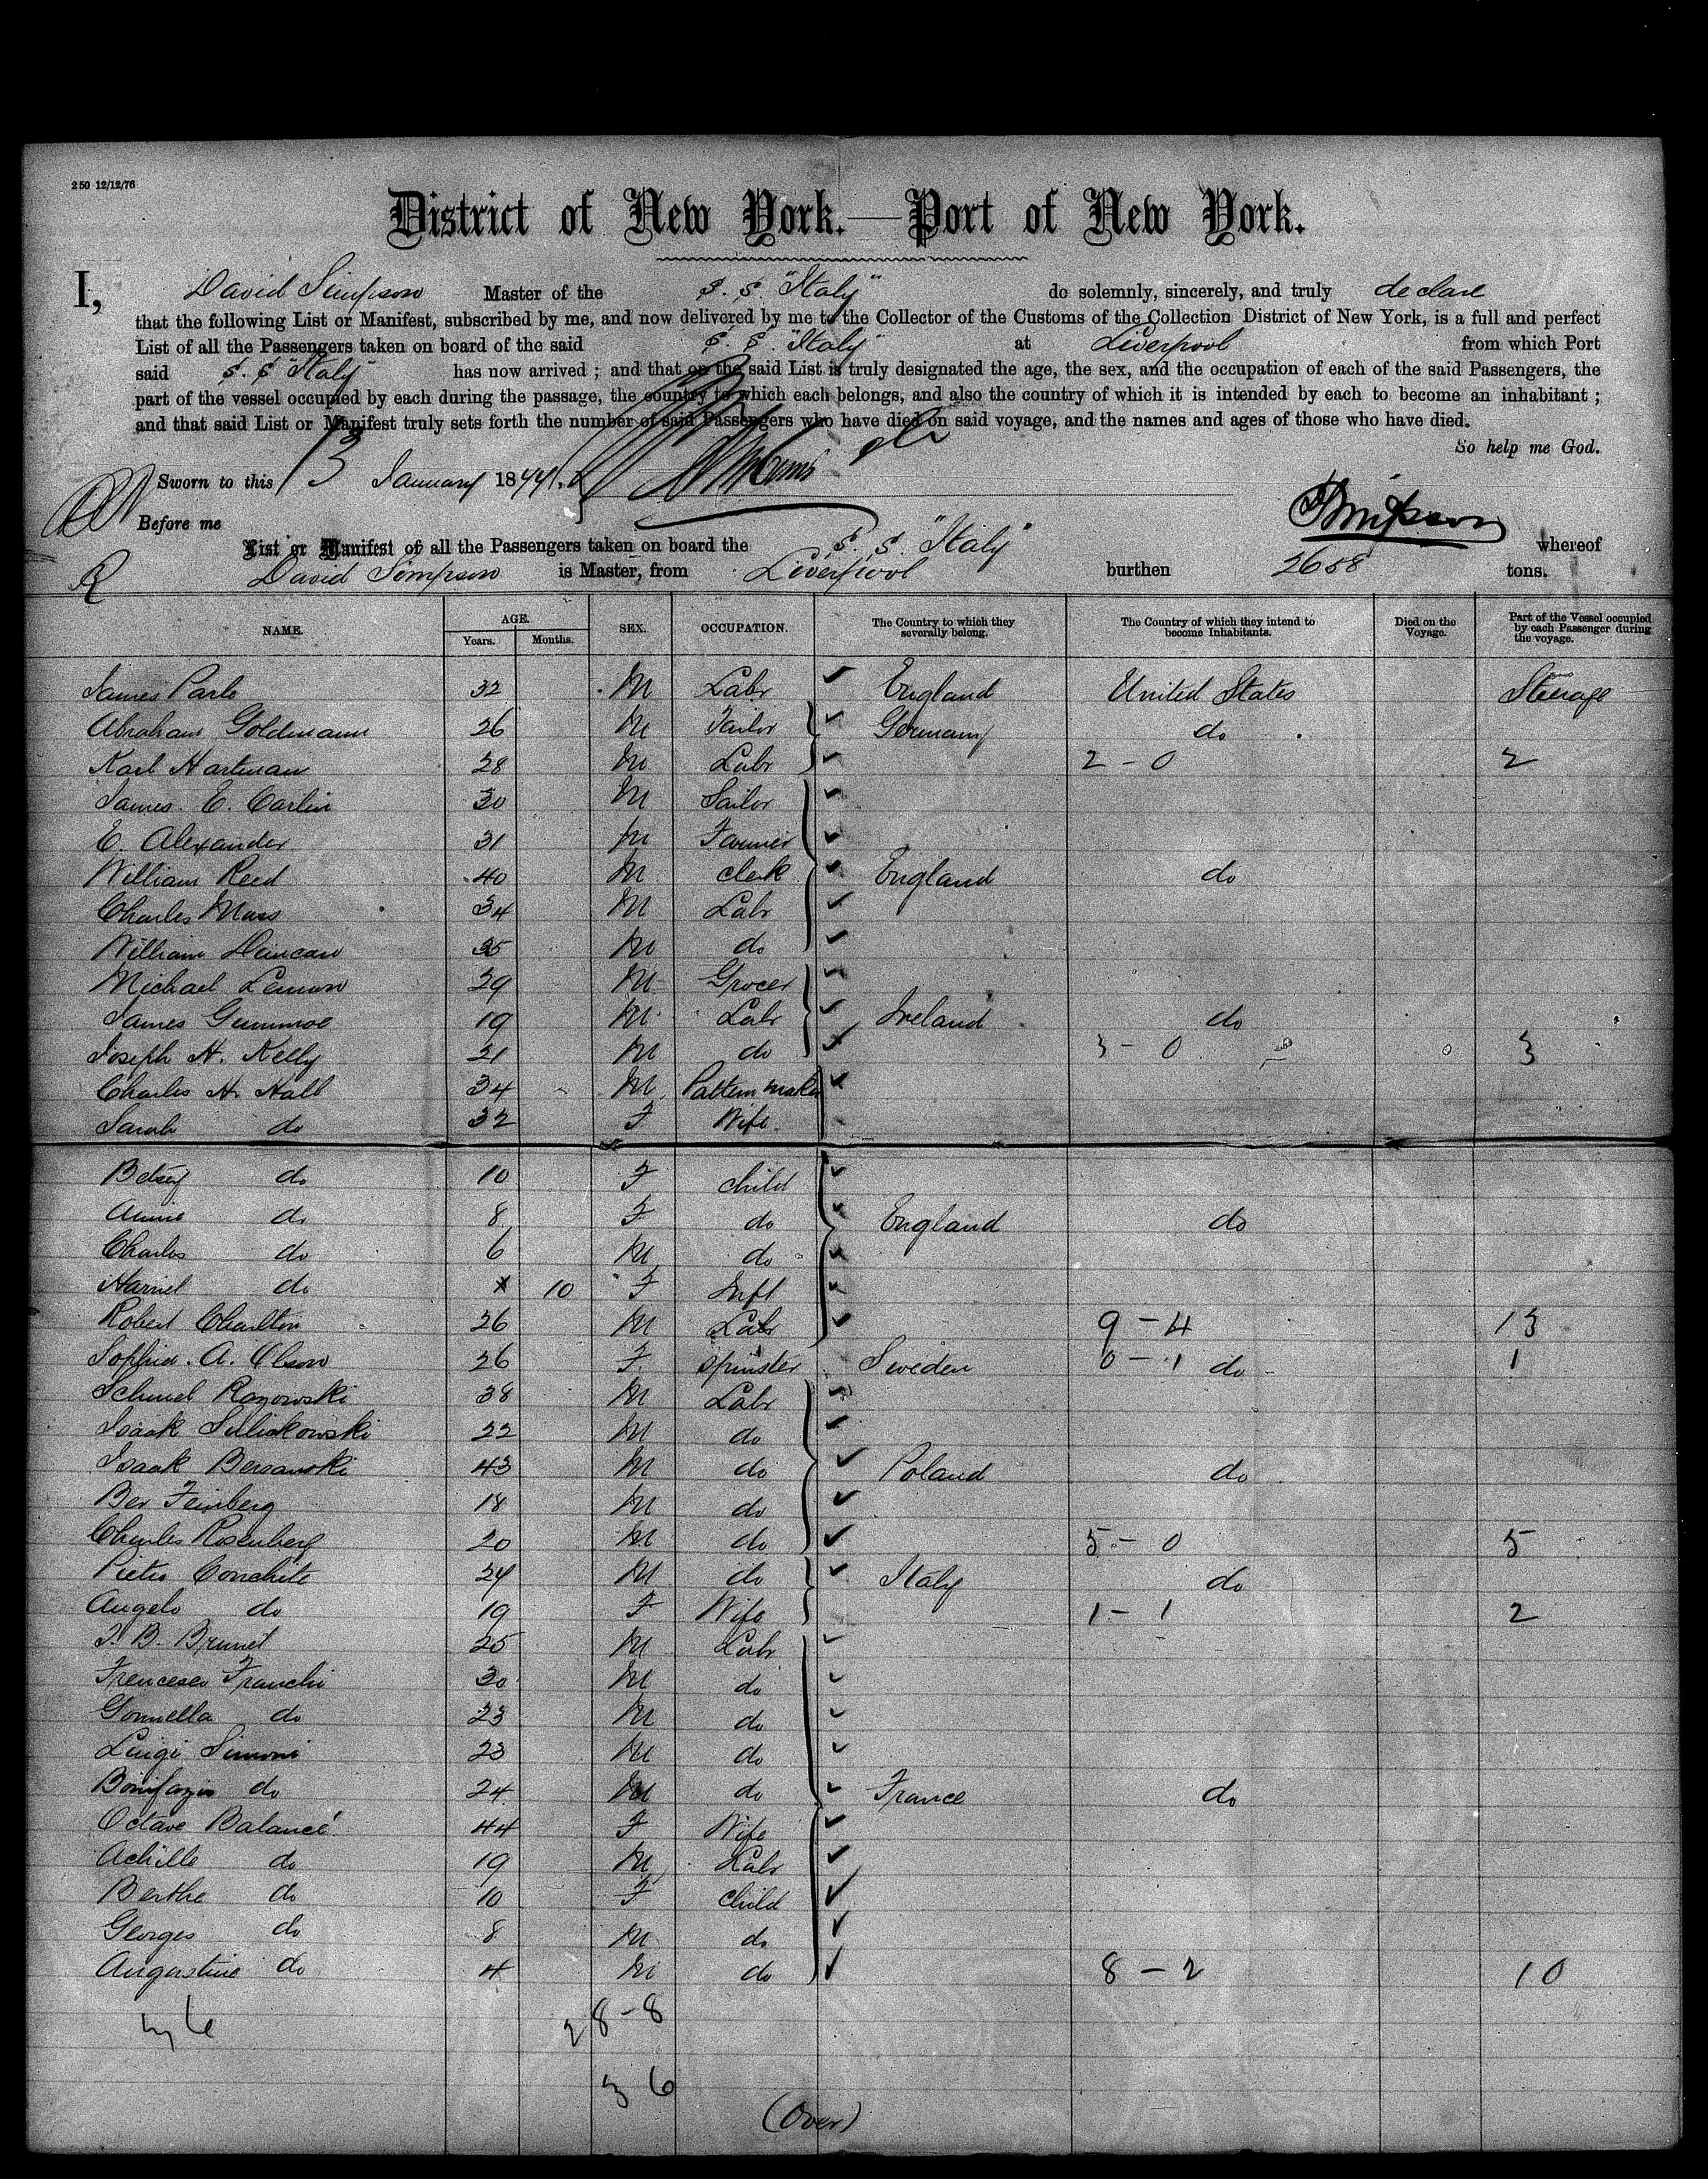 250 12/12/76
District of New York.—Port of New York.
I, David Simpson Master of the S. S. "Italy" do solemnly, sincerely, and truly declare
that the following List or Manifest, subscribed by me, and now delivered by me to the Collector of the Customs of the Collection District of New York, is a full and perfect
List of all the Passengers taken on board of the said S. S. "Italy" at Liverpool from which Port
said S. S "Italy" has now arrived ; and that on the said List is truly designated the age, the sex, and the occupation of each of the said Passengers, the
part of the vessel occupied by each during the passage, the country to which each belongs, and also the country of which it is intended by each to become an inhabitant ;
and that said List or Manifest truly sets forth the number of said Passengers who have died on said voyage, and the names and ages of those who have died.
So help me God.
Sworn to this 13 January 18
Before me
DSimpson
List or Manifest of all the Passengers taken on board the S. S. "Italy" whereof
David Simpson is Master, from Liverpool burthen 2658 tons.
NAME. AGE. Years. Months. SEX. OCCUPATION. The Country to which they severally belong. The Country of which they intend to become Inhabitants. Died on the Voyage. Part of the Vessel occupied by each Passenger during the voyage.
James Parle 32 M Labr England United States Steerage
Abraham Goldmann 26 M Tailor Germany do
Karl Hartman 28 M Labr 2 - 0 2
James. E. Carlin 30 M Sailor
E. Alexander 31 M Farmer
William Reed 40 M clerk England do
Charles Mass 34 M Labr
William Duncan 35 M do
Michael Lennon 29 M Grocer
James 19 M Labr Ireland do
Joseph H. Kelly 21 M do 3 - 0 3
Charles H. Hall 34 M Pattern maker
Sarah do 32 F Wife
Betsey do 10 F child
Annie do 8 F do England do
Charles do 6 M do
Harriet do 10 F Inft
Robert Charlton 26 M Labr 9 - 4 13
Sophia. A. Olson 26 F spinster Sweden 0 - 1 do 1
Schmul Razowski 38 M Labr
Isaak 22 M do
Isaak Bersanski 43 M do Poland do
Ber Feinberg 18 M do
Charles Rosenberg 20 M do 5 - 0 5
Pietro Conchite 24 M do Italy do
Angelo do 19 F Wife 1 - 1 2
J. B. Brunet 25 M Labr
Frencesco Franchi 30 M do
Gonnella do 23 M do
Luigi Simoni 23 M do
Bonifazio do 24 M do France do
Octave Balancé 44 F Wife
Achille do 19 M Labr
Berthe do 10 F Child
Georges do 8 M do
Augustine do 4 M do 8 - 2 10
28 - 8
36
(Over)